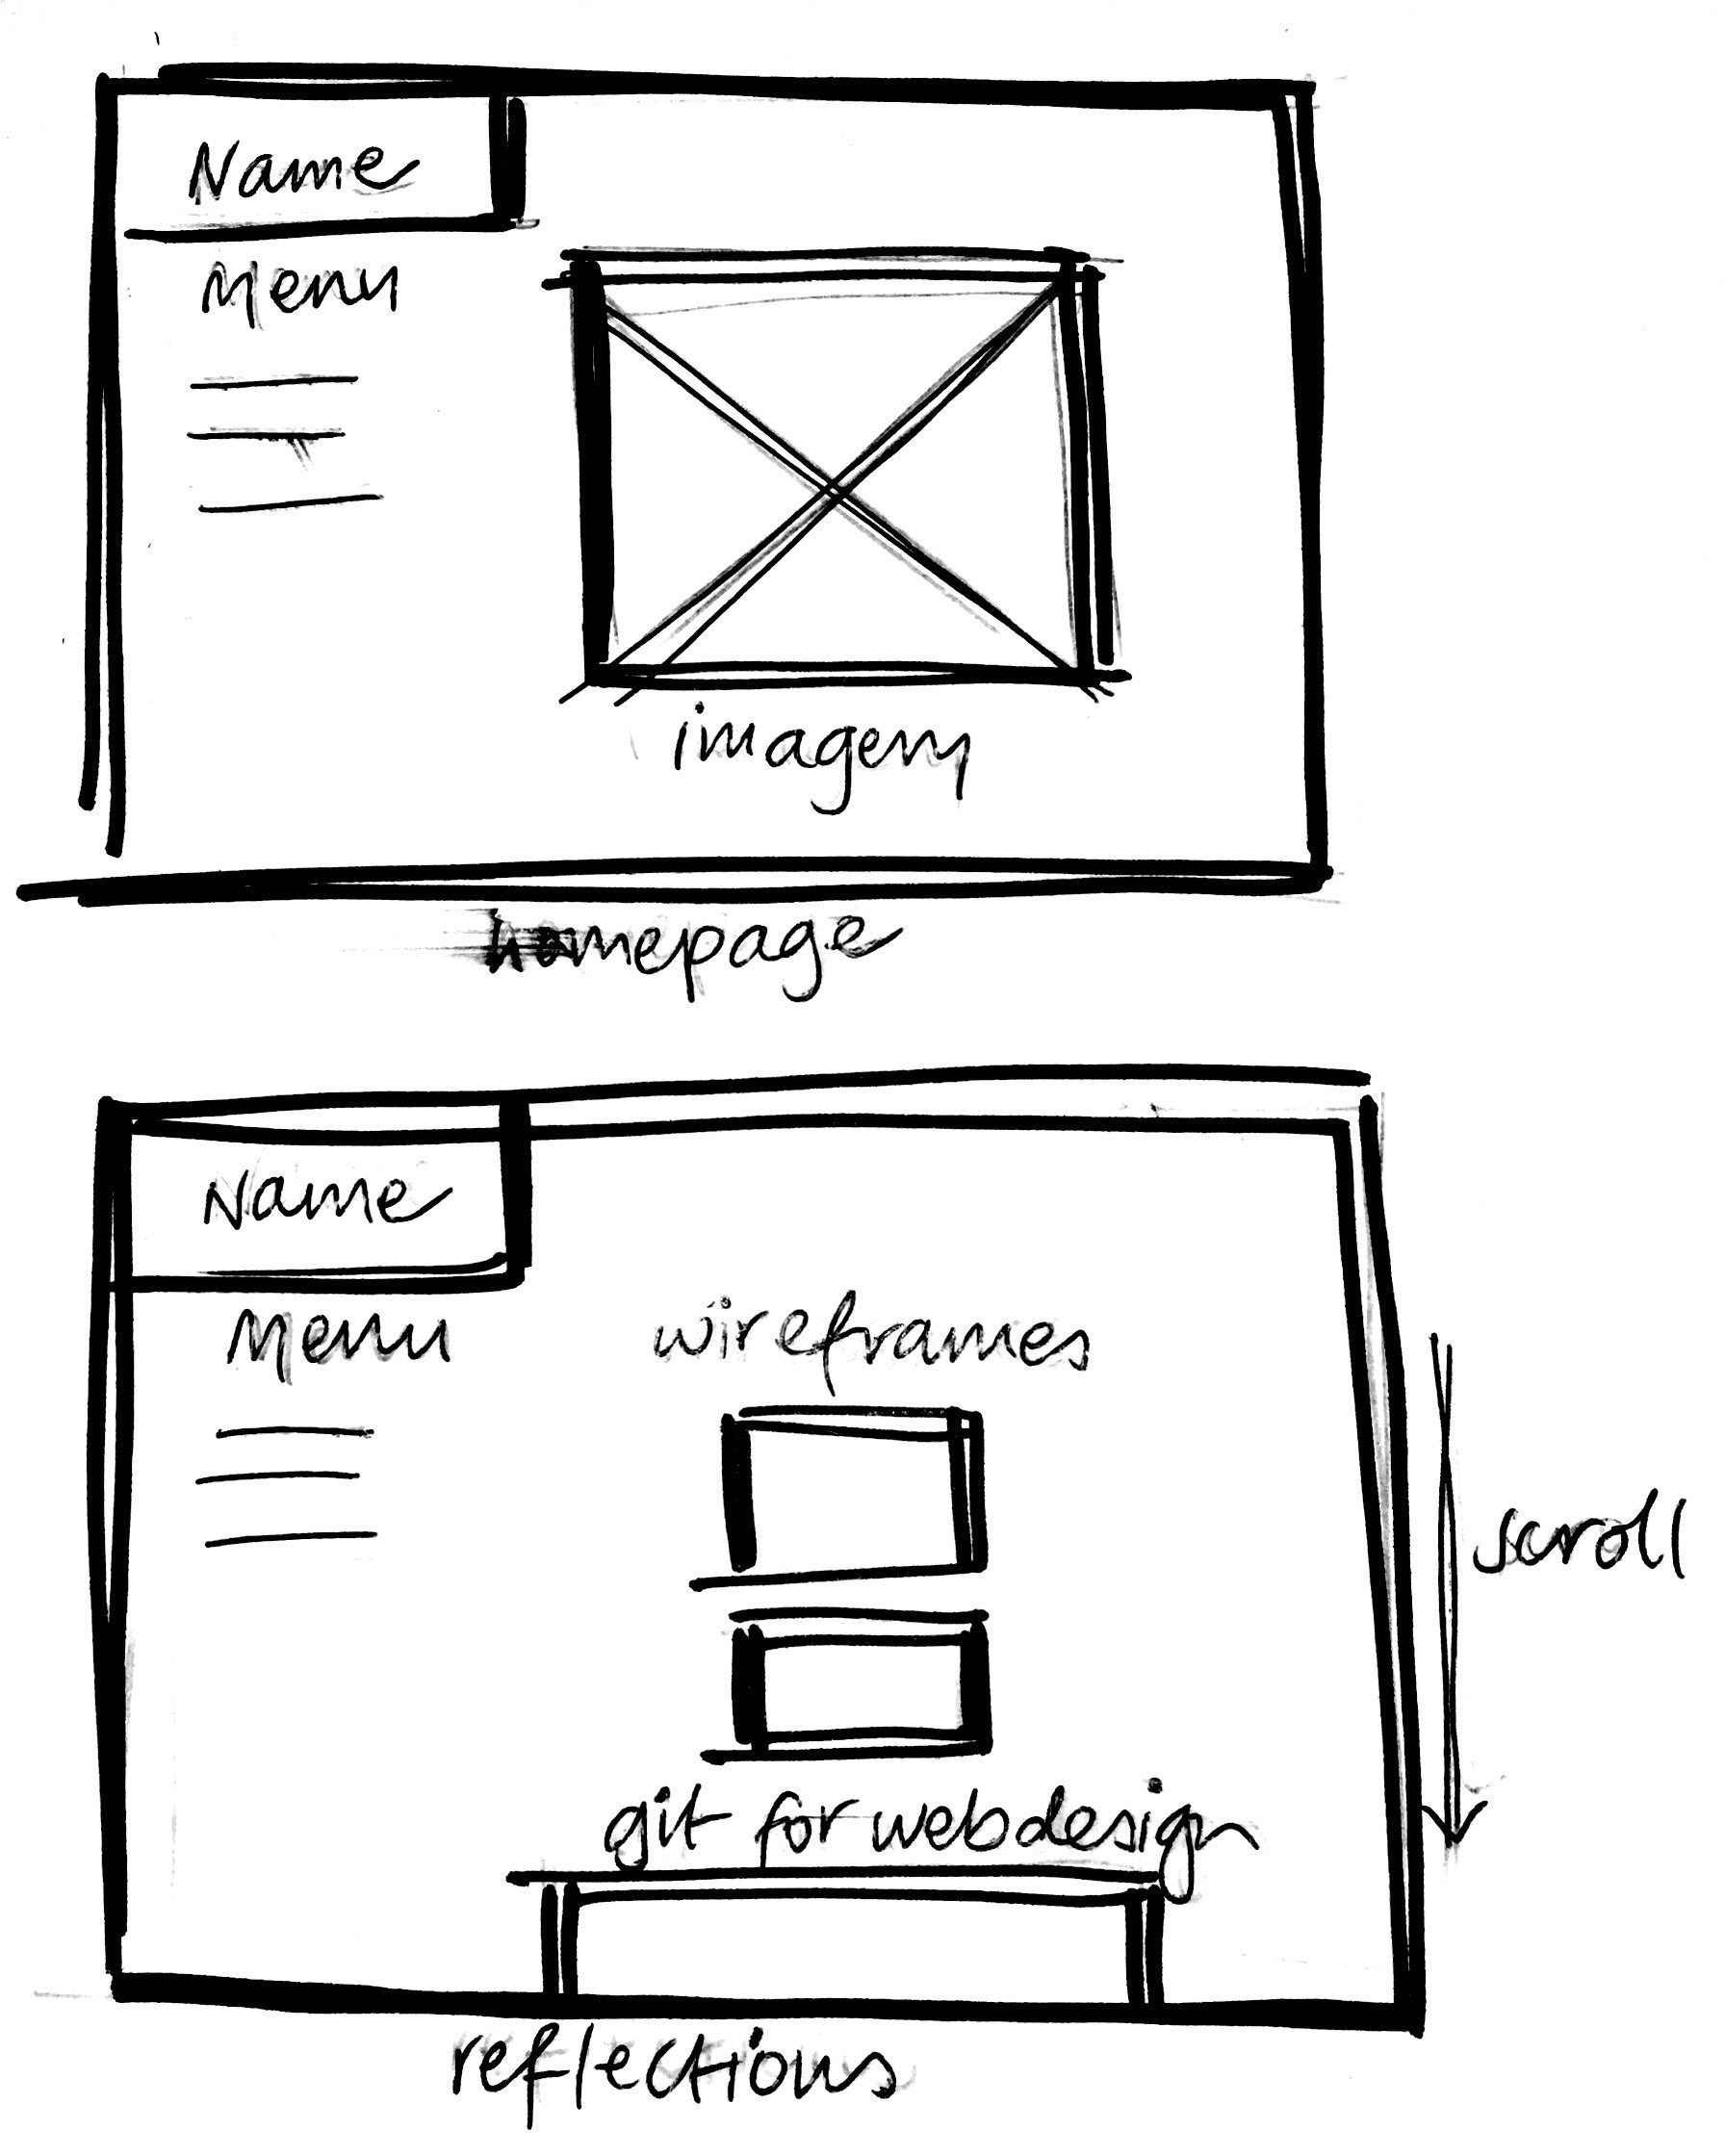 Name
Menu
imagem
homepage
Name
Menu
wireframes
scroll
git for webdesign
reflections